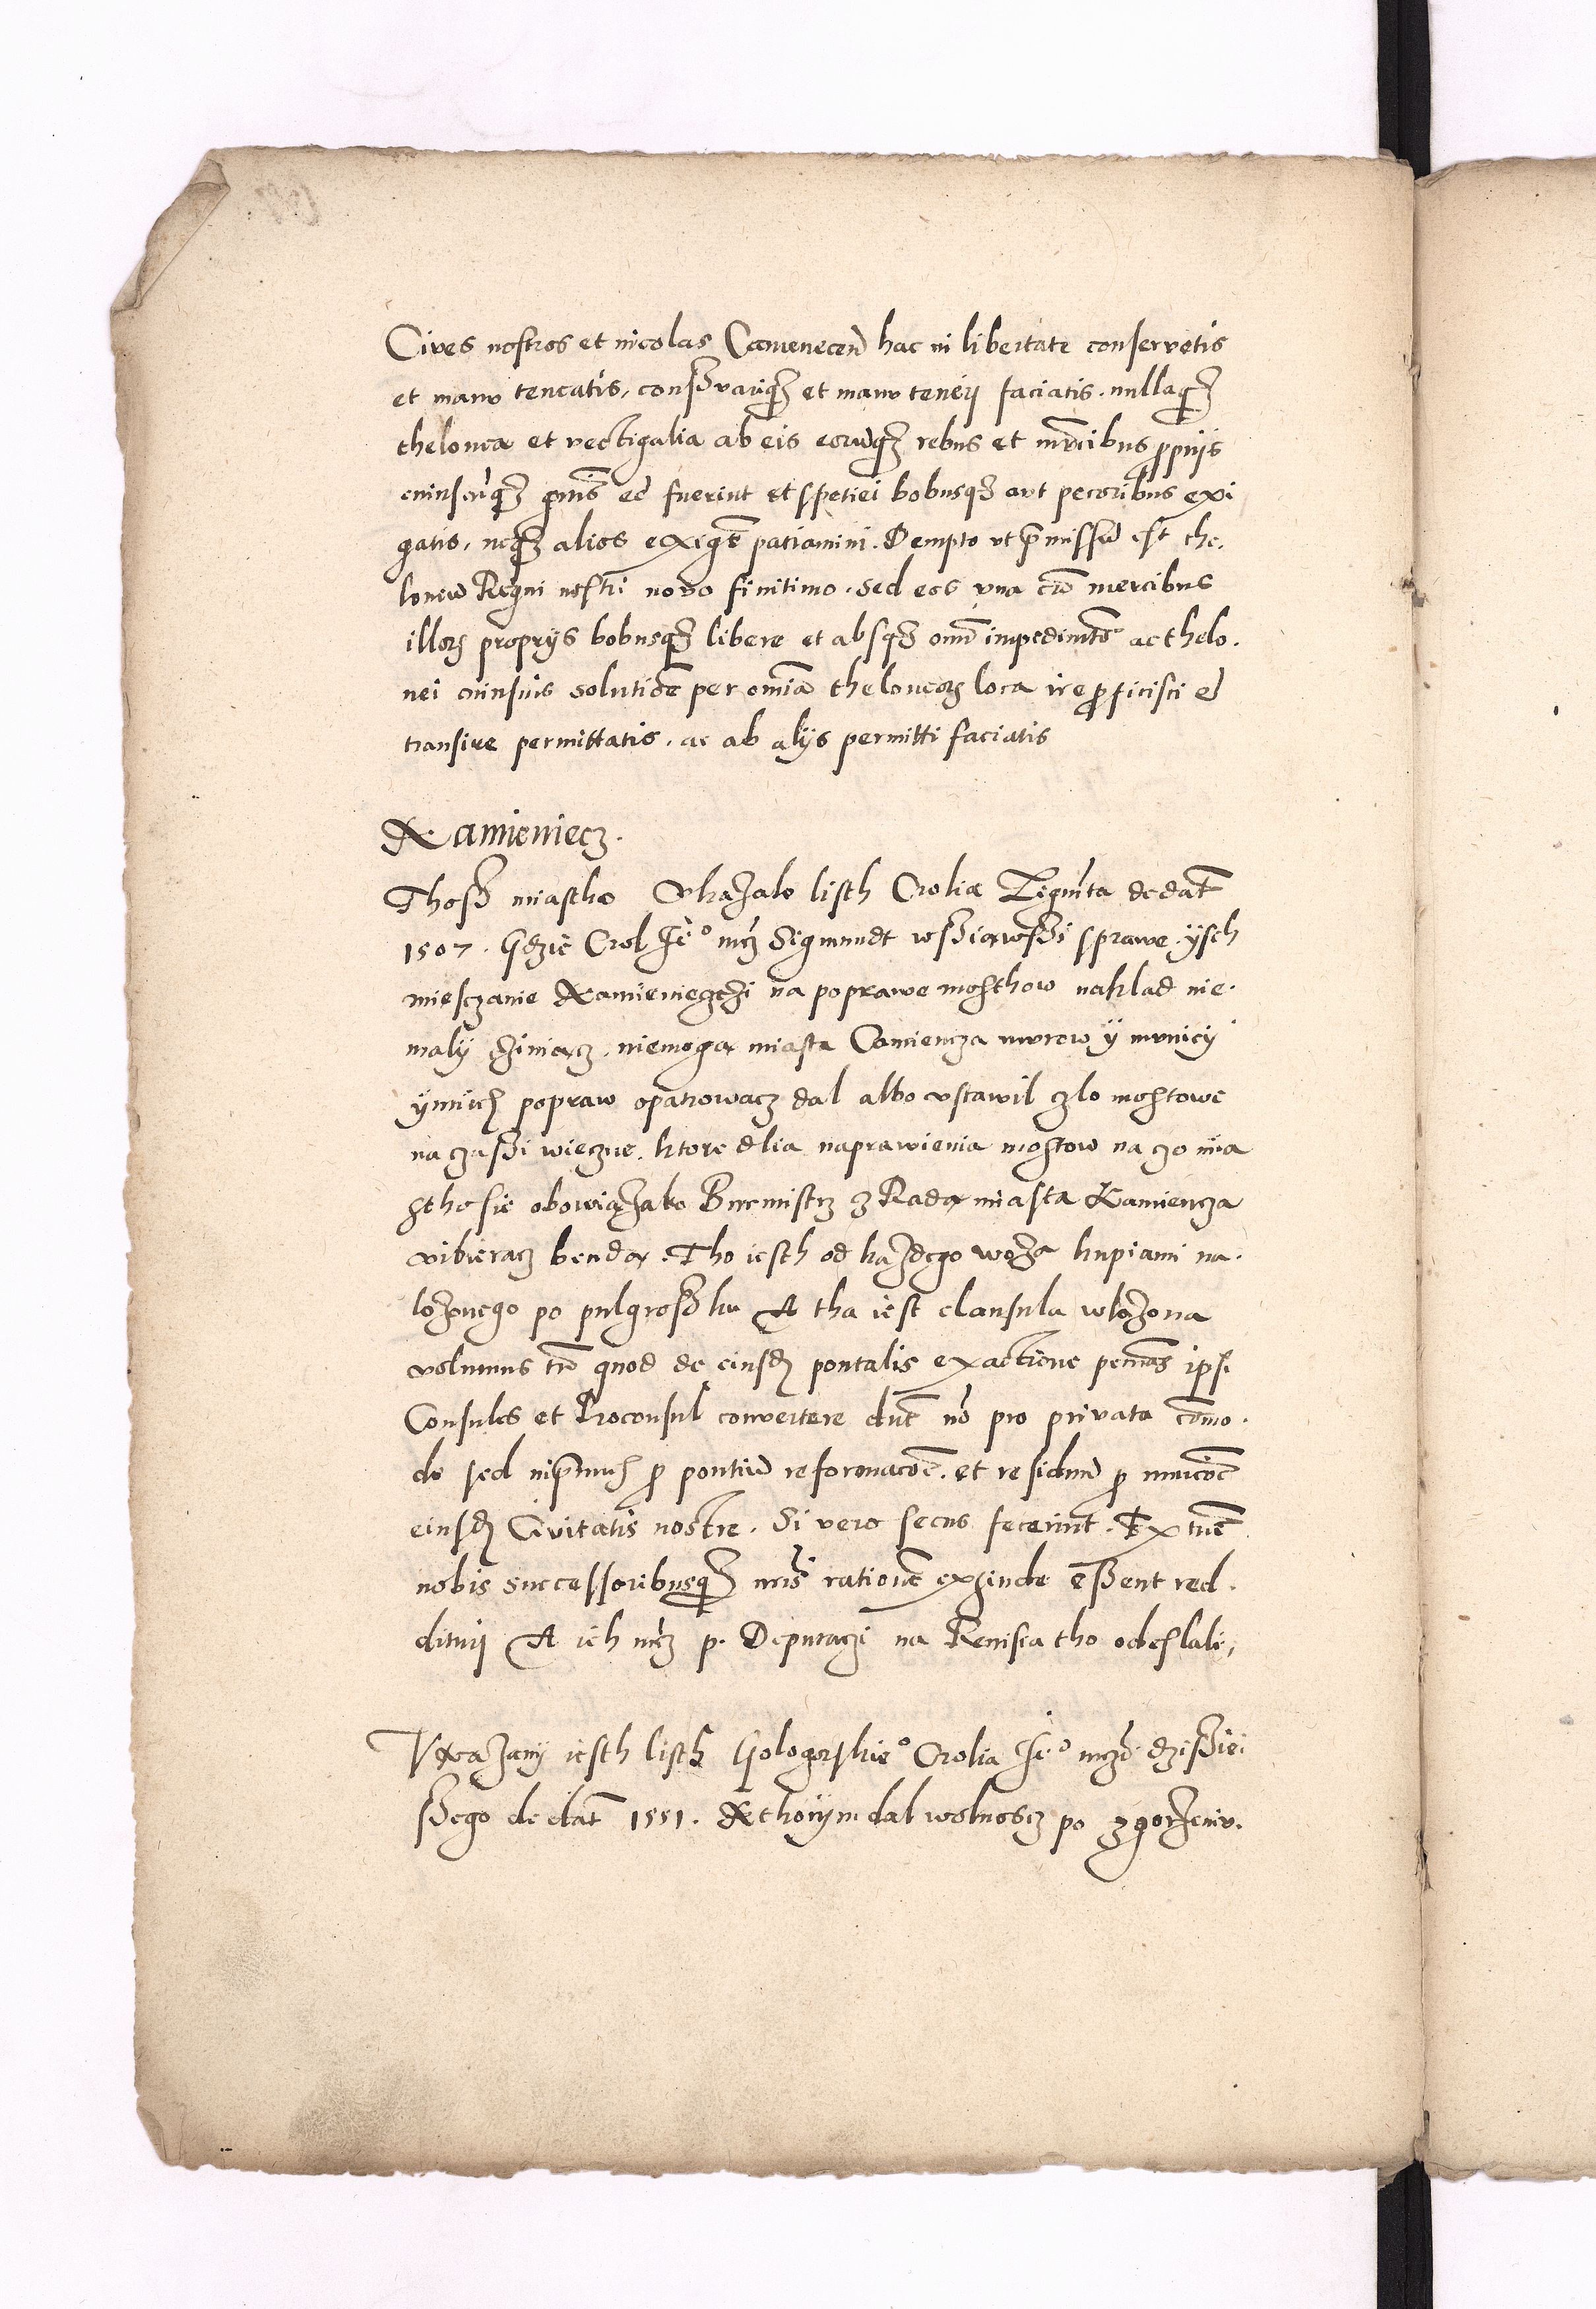 Cives nostros et incolas Camenecen hac in libertate conservetis
et manu teneatis, conservariq3 et manu teneri faciatis. nullaq3
thelonea et vectigalia ab eis eorūq3 rebus et mrcibus ppriis
cuiuscūq3 gnis ec fuerint et spetiei bobusq3 aut pecoribus exi
gatis, neq3 alios exigē patiamini. Dempto ut pmissū est the.
loneū Regni nostri novo finitimo. sed eos vna cū mercibus
illor3 proprijs bobusq3 libere et absq3 omī impedimto ac thelo.
nei cuiusuis solutiōe per omnia theloneor3 loca ire pficisci et
transire permittatis. ac ab alijs permitti faciatis
Kamieniecz.
Thosz miastho Vkazalo listh Crolia Zigmūta de dat
1507. Gdzie Crol Je° mcz Sigmundt wsziawszi sprawe. ysch
miesczanie Kamienieczczi na poprawe mosthow naklad nie.
maly cziniacz, niemoga miasta Camiencza murow y municij
ynnich popraw opatrowacz dal albo vstawil czlo mostowe
na czaszi wieczne. ktore dlia naprawienia mostow na czo mia
stho sie obowiazalo Burmistrz z Rada miasta Kamiencza
vibieracz benda. Tho iesth od kazdego woza kupiami na.
lozonego po pulgroszku A tha iest clausula wlozona
volumus tn quod de eiusd pontalis exactione pecunias ipsi
Consules et Proconsul convertere dnt nō pro privato cōmo.
do sed inprimis p pontiū reformacōe. et residuū p municōe
eiusd Civitatis nostre. Si vero secus fecerint. Extūc
nobis successoribusq3 nris rationē exinde essent red.
dituri A ich mcz p. Deputaczi na Rewisia tho odeslali,
Vkazany iesth listh Hologorskie° Crolia Je° mczi dzisziei.
szego de dat 1551. Kthorym dal wolnoscz po zgorzeniu.